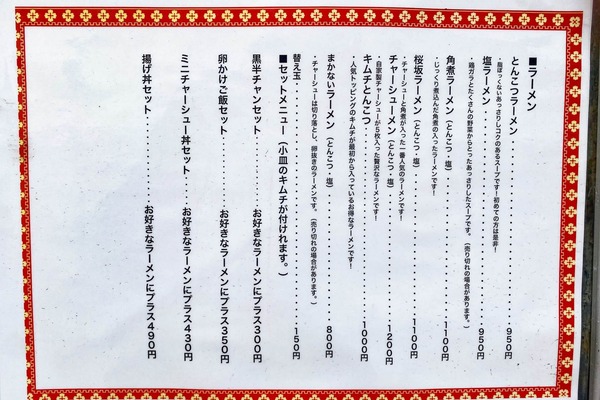 ■ラーメン
とんこつラーメン・・・・・・・・・・・・・・・・・・・・950円
・脂ぽっくないあっさりしコクのあるスープです！初めての方は是非！
塩ラーメン・・・・・・・・・・・・・・・・・・・・950円
・鶏ガラとたくさんの野菜からとったあっさりしたスープです。（売り切れの場合があります。）
角煮ラーメン（とんこつ・塩）・・・・・・・・・・・・・・・・1100円
・じっくり煮込んだ角煮の入ったラーメンです！
桜坂ラーメン（とんこつ・塩）・・・・・・・・・・・・・・・・1100円
・チャーシューと角煮が入った一番人気のラーメンです！
チャーシューメン（とんこつ・塩）・・・・・・・・・・・・・・1200円
・自家製チャーシューが5枚入った贅沢なラーメンです！
キムチとんこつ・・・・・・・・・・・・・・・・・・・・1000円
・人気トッピングのキムチが最初から入っているお得なラーメンです！
まかないラーメン（とんこつ・塩）・・・・・・・・・・・・・・800円
・チャーシューは切り落とし、卵抜きのラーメンです。（売り切れの場合があります。）
替え玉・・・・・・・・・・・・・・・・・・・・・・・・150円
■セットメニュー（小皿のキムチが付けれます。）
黒半チャンセット・・・・・・・・お好きなラーメンにプラス300円
卵かけご飯セット・・・・・・・・お好きなラーメンにプラス350円
ミニチャーシュー丼セット・・・・お好きなラーメンにプラス430円
揚げ丼セット・・・・・・・・・・お好きなラーメンにプラス490円